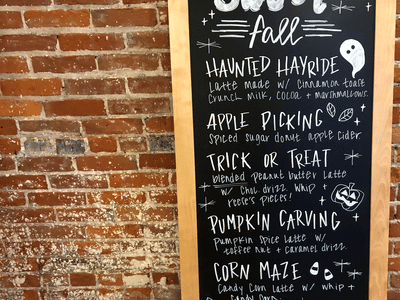 fall
HAUNTED HAYRIDE
Latte made w/ cinnamon toast
crunch milk, cocoa + marshmallows.
APPLE PICKING
Spiced sugar donut apple cider.
TRICK OR TREAT
blended peanut butter latte
w/ choc drizz. whip +
reese's pieces!
PUMPKIN CARVING
Pumpkin Spice Latte w/
toffee nut + caramel drizz.
CORN MAZE
Candy Corn Latte w/ whip +
candy corn